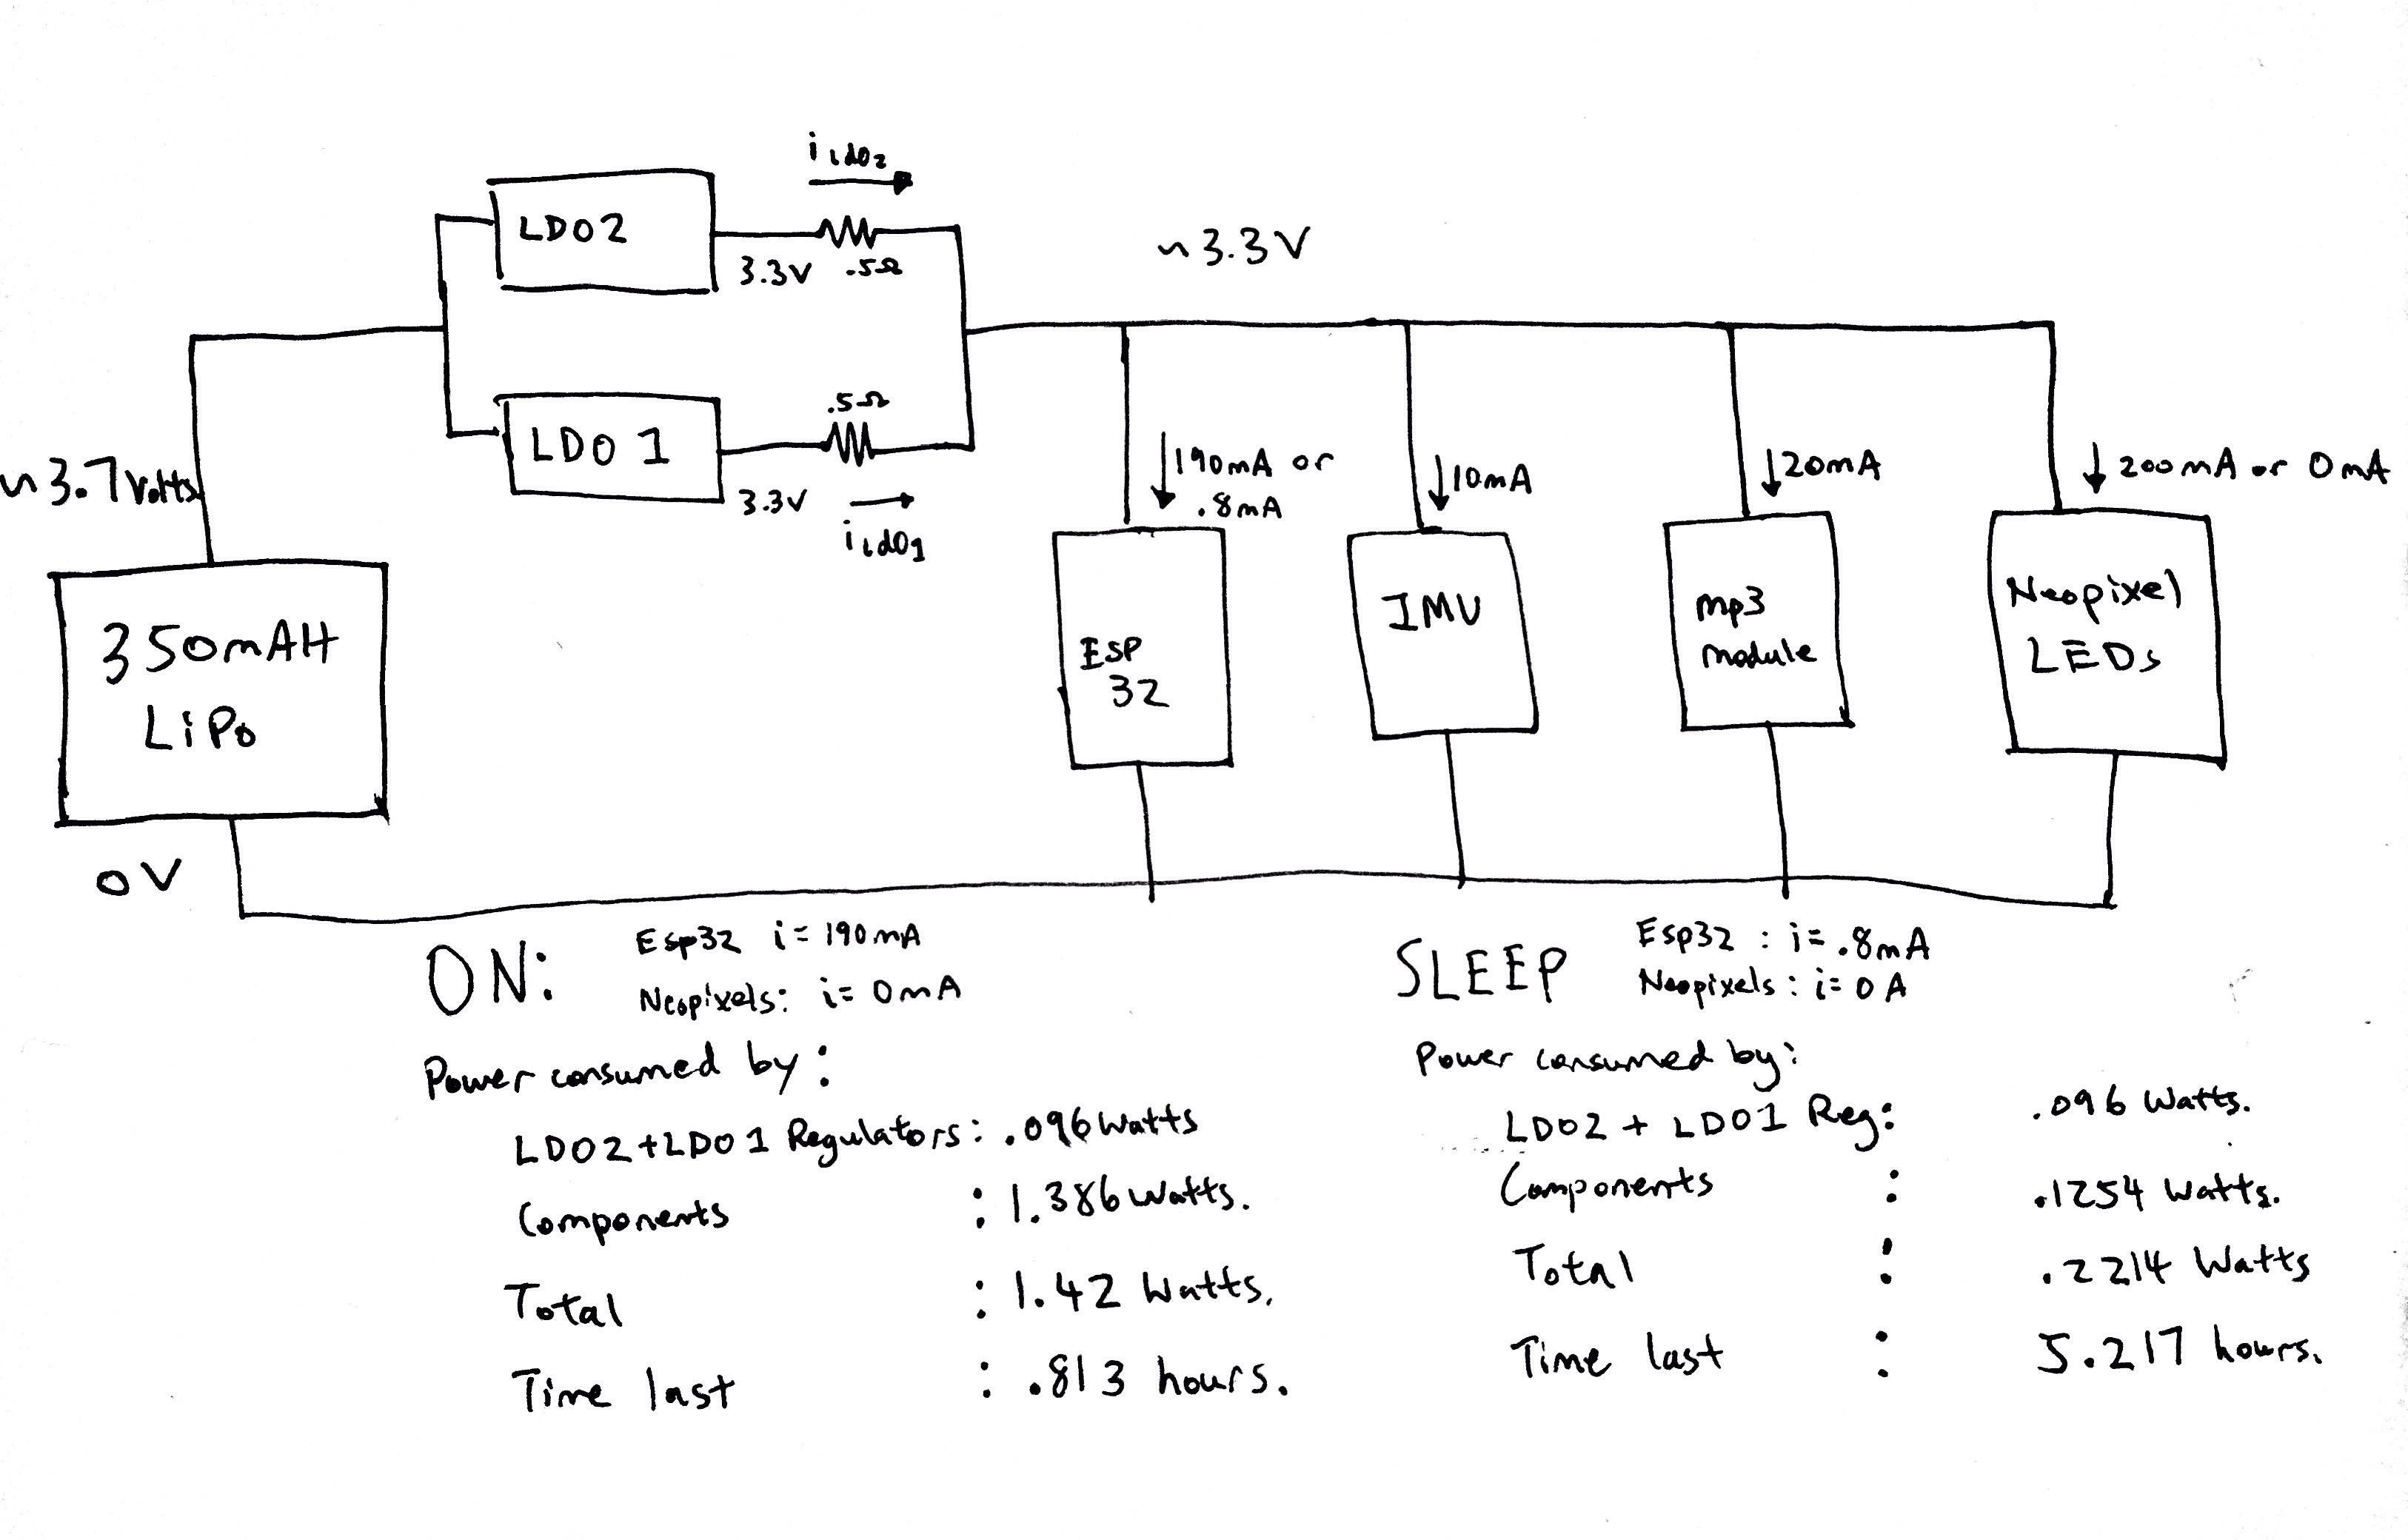 i LDO2
LDO2
3.3V .5Ω
~3.3V
.5Ω
LDO 1
3.3V
i LDO1
~3.7 Volts
190mA or
.8mA
10mA
20mA
200mA or 0mA
350mAH
LiPo
0V
ESP
32
IMU
mp3
module
Neopixel
LEDs
ON:
Esp32 i = 190mA
Neopixels: i = 0mA
Power consumed by:
LDO2+LDO1 Regulators: .096 Watts
Components : 1.386 Watts.
Total : 1.42 Watts.
Time last : .813 hours.
SLEEP
Esp32 : i = .8mA
Neopixels : i = 0 A
Power consumed by:
LDO2 + LDO1 Reg: .096 Watts.
Components : .1254 Watts.
Total : .2214 Watts
Time last : 5.217 hours.